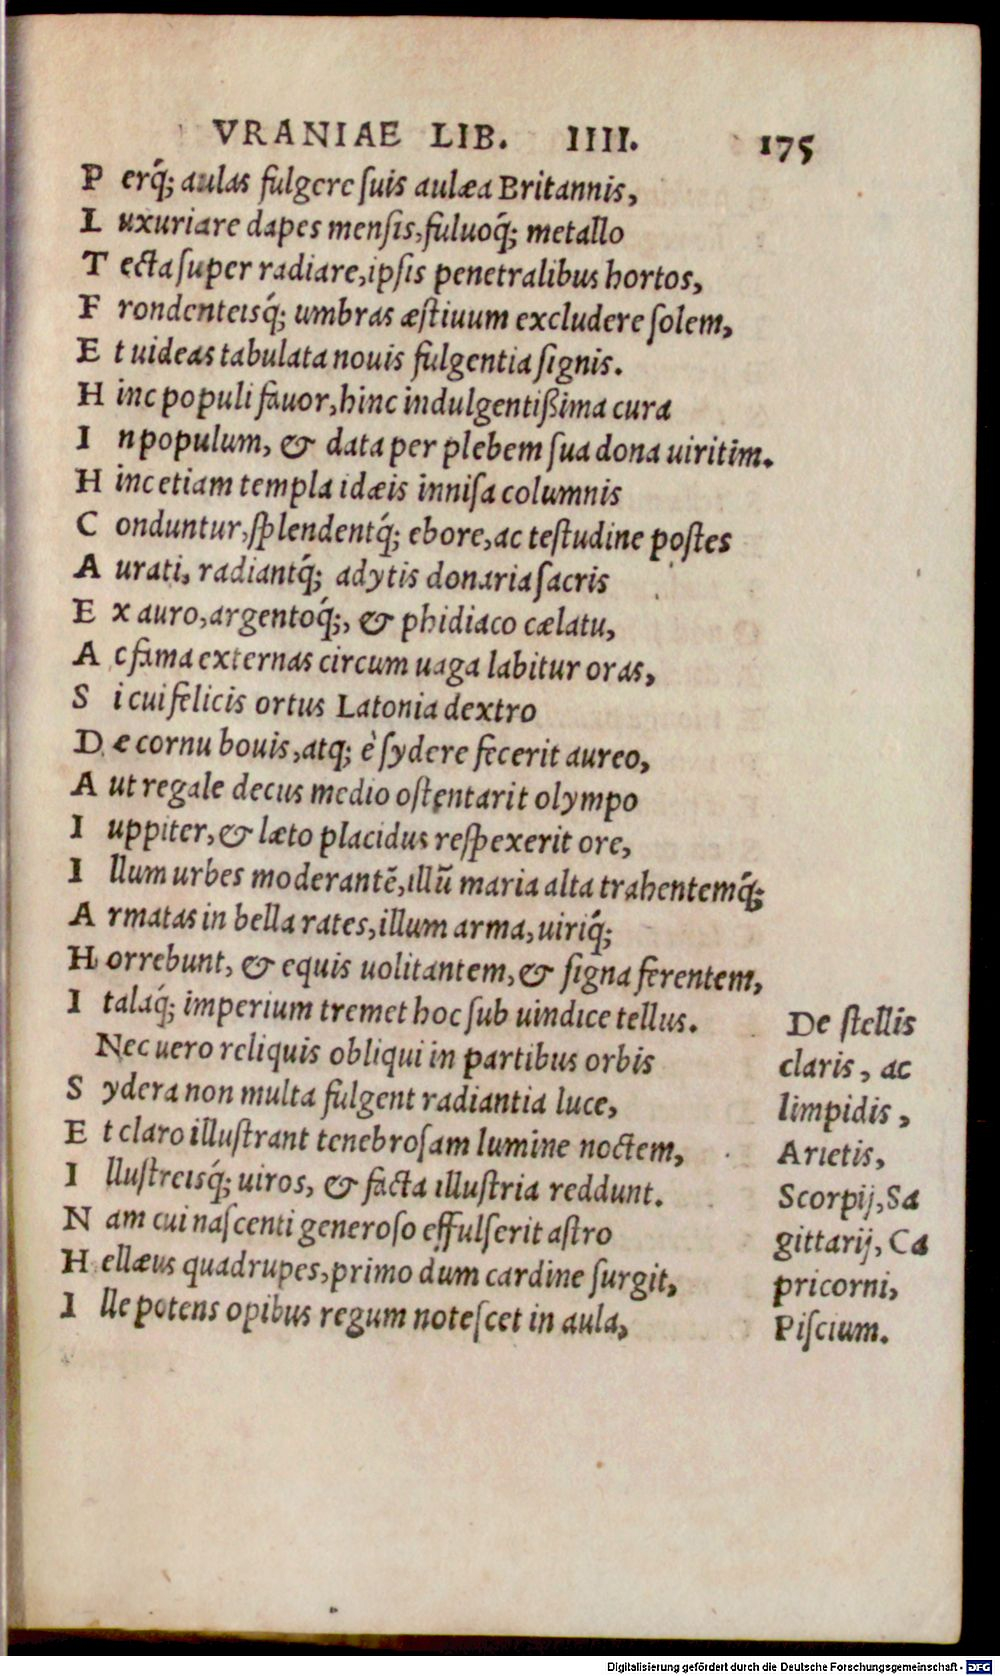 VRANIAE LIB. IIII. 175
P erq́; aulas fulgere ſuis aulæa Britannis,
L uxuriare dapes menſis, fuluoq́; metallo
T ecta ſuper radiare, ipſis penetralibus hortos,
F rondenteisq́; umbras æſtiuum excludere ſolem,
E t uideas tabulata nouis fulgentia ſignis.
H inc populi fauor, hinc indulgentißima cura
I n populum, & data per plebem ſua dona uiritim.
H inc etiam templa idæis inniſa columnis
C onduntur, ſplendentq́; ebore, ac teſtudine poſtes
A urati, radiantq́; adytis donaria ſacris
E x auro, argentoq́;, & phidiaco cælatu,
A c fama externas circum uaga labitur oras,
S i cui felicis ortus Latonia dextro
D e cornu bouis, atq; è ſydere fecerit aureo,
A ut regale decus medio oſtentarit olympo
I uppiter, & læto placidus reſpexerit ore,
I llum urbes moderantē, illū maria alta trahentemq́;
A rmatas in bella rates, illum arma, uiriq́;
H orrebunt, & equis uolitantem, & ſigna ferentem,
I talaq́; imperium tremet hoc ſub uindice tellus.
Nec uero reliquis obliqui in partibus orbis
S ydera non multa fulgent radiantia luce,
E t claro illuſtrant tenebroſam lumine noctem,
I lluſtreisq́; uiros, & facta illuſtria reddunt.
N am cui naſcenti generoſo effulſerit aſtro
H ellæus quadrupes, primo dum cardine ſurgit,
I lle potens opibus regum noteſcet in aula,
De ſtellis
claris, ac
limpidis,
Arietis,
Scorpij, Sa
gittarij, Ca
pricorni,
Piſcium.
Digitalisierung gefördert durch die Deutsche Forschungsgemeinschaft - DFG